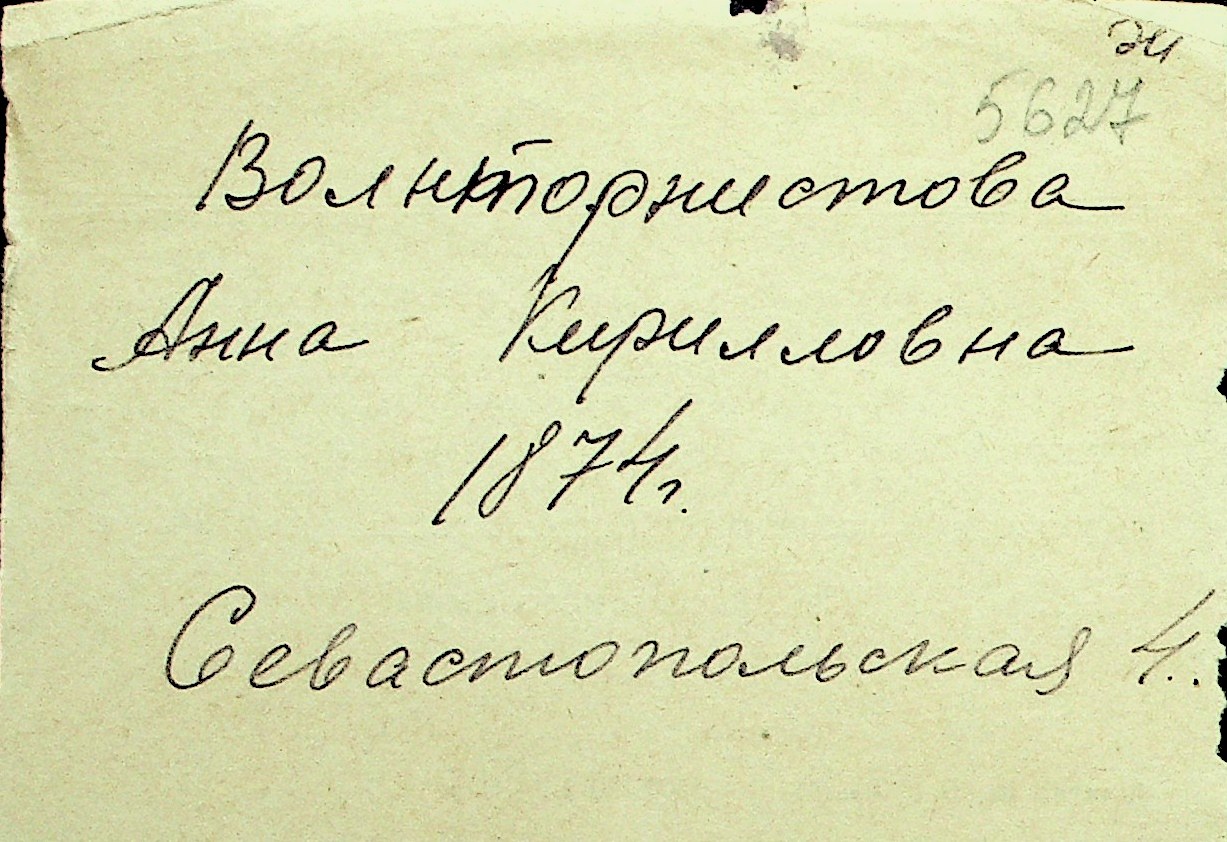 5627
Волнторнистова
Анна Кирилловна
1874г.
Севастопольская 4.